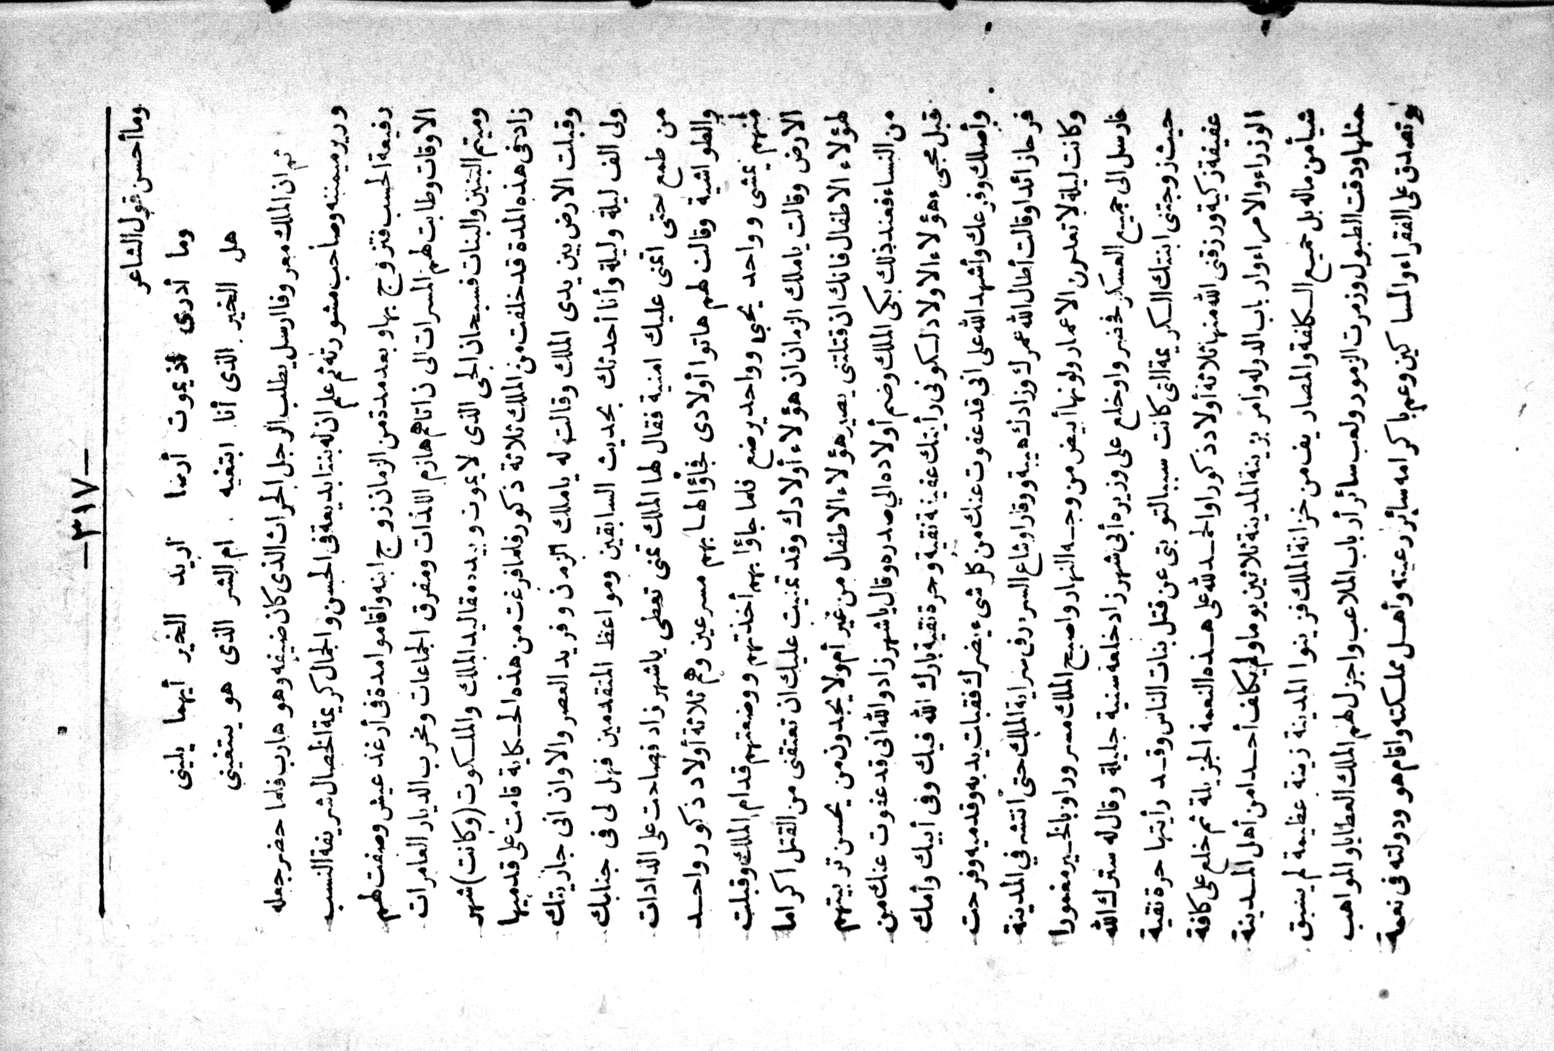 — ٣١٧ —
وما أحسن قول الشاعر
وما أدرى اذا يممت أرضا اريد الخير أيهما يلينى
هل الخير الذى أنا ابتغيه . ام الشر الذى هو يبتغينى
ثم ان الملك معروفا ارسل يطلب الرجل الحراث الذى كان ضيفه وهو هارب فلما حضر جعله
وزير ميمنته وصاحب مشورته ثم علم ان له بنتا بديعة فى الحسن والجمال كريمة الخصال شريفة النسب
رفيعة الحسب فتزوج بها وبعد مدة من الزمان زوج ابنه وأقاموا مدة فى أرغد عيش وصفت لهم
الاوقات وطابت لهم المسرات الى ان اتاهم هازم اللذات ومفرق الجماعات ومخرب الديار العامرات
وميتم البنين والبنات فسبحان الحى الذى لا يموت وبيده مقاليد الملك والملكوت (وكانت) شهر
زاد فى هذه المدة قد خلفت من الملك ثلاثة ذكور فلما فرغت من هذه الحكاية قامت على قدميها
وقبلت الارض بين يدى الملك وقالت له ياملك الزمان وفريد العصر والاوان انى جاريتك
ولى الف ليلة وليلة وأنا أحدثك بحديث السابقين ومواعظ المتقدمين فهل لى فى جنابك
من طمع حتى اتمنى عليك امنية فقال لها الملك تمنى تعطى ياشهر زاد فصاحت على الدادات
والطواشية وقالت لهم هاتوا أولادى فجاؤا لها بهم مسرعين وهم ثلاثة أولاد ذكور واحد
منهم يمشى وواحد يحبى وواحد يرضع فلما جاؤا بهم أخذتهم ووضعتهم قدام الملك وقبلت
الارض وقالت ياملك الزمان ان هؤلاء أولادك وقد تمنيت عليك ان تعتقنى من القتل اكراما
لهؤلاء الاطفال فانك ان قتلتنى يصير هؤلاء الاطفال من غير أم ولا يجدون من يحسن تربيتهم
من النساء فعند ذلك بكى الملك وضم أولاده الى صدره وقال ياشهر زاد والله انى قد عفوت عنك من
قبل مجىء هؤلاء الاولاد لكونى رأيتك عفيفة نقية وحرة تقية بارك الله فيك وفى أبيك وأمك
وأصلك وفرعك وأشهد الله على انى قد عفوت عنك من كل شىء يضرك فقبلت يديه وقدميه وفرحت
فرحا زائدا وقالت أطال الله عمرك وزادك هيبة ووقارا وشاع السرور فى سراية الملك حتى انتشر فى المدينة
وكانت ليلة لا تعد من الاعمار ولونها أبيض من وجه النهار واصبح الملك مسرورا وبالخير مغمورا
فارسل الى جميع العسكر فحضروا وخلع على وزيره أبى شهر زاد خلعة سنية جليلة وقال له سترك الله
حيث زوجتنى ابنتك الكريمة التى كانت سببا لتوبتى عن قتل بنات الناس وقد رأيتها حرة نقية
عفيفة زكية ورزقنى الله منها ثلاثة أولاد ذكور والحمد لله على هذه النعمة الجزيلة ثم خلع على كافة
الوزراء والامراء وارباب الدولة وأمر بزينة المدينة ثلاثين يوما ولم يكلف أحدا من أهل المدينة
شيأ من ماله بل جميع الكلفة والمصاريف من خزانة الملك فزينوا المدينة زينة عظيمة لم يسبق
مثلها ودقت الطبول وزمرت الزمور ولعب سائر أرباب الملاعب واجزل لهم الملك العطايا والمواهب
وتصدق على الفقراء والمساكين وعم باكرامه سائر رعيته وأهل مملكته واقام هو ودولته فى نعمة